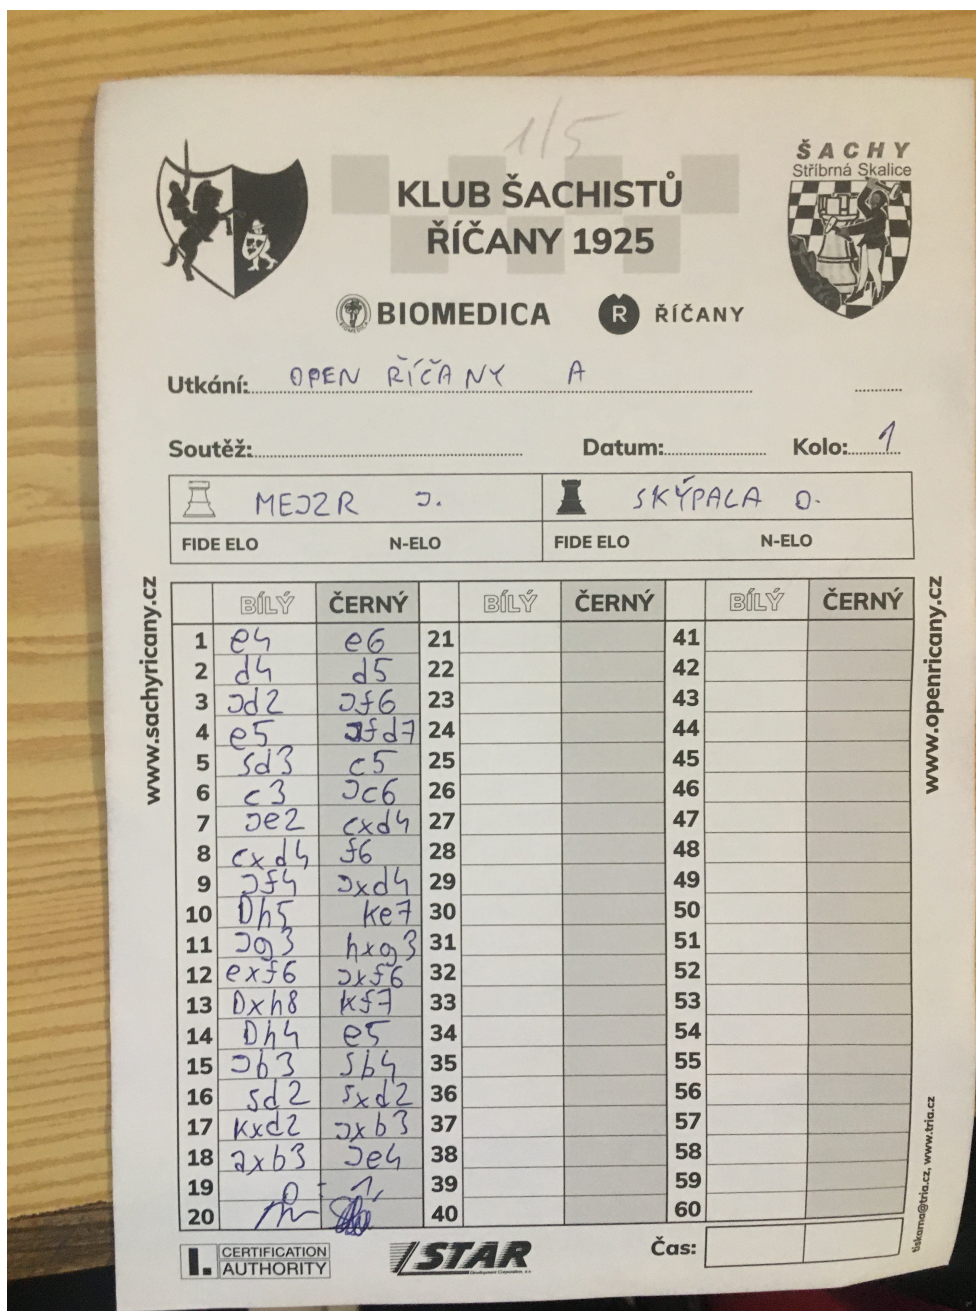 1/5
ŠACHY
Stříbrná Skalice
KLUB ŠACHISTŮ
ŘÍČANY 1925
BIOMEDICA R ŘÍČANY
Utkání: OPEN ŘÍČANY A
Soutěž: Datum: Kolo: 1
MEJZR J. SKÝPALA O.
FIDE ELO N-ELO FIDE ELO N-ELO
www.sachyricany.cz
BÍLÝ ČERNÝ BÍLÝ ČERNÝ BÍLÝ ČERNÝ
1 e4 e6 21 41
2 d4 d5 22 42
3 Jd2 Jf6 23 43
4 e5 Jfd7 24 44
5 Sd3 c5 25 45
6 c3 Jc6 26 46
7 Je2 cxd4 27 47
8 cxd4 f6 28 48
9 Jf4 Jxd4 29 49
10 Dh5 Ke7 30 50
11 Jg3 hxg3 31 51
12 exf6 Jxf6 32 52
13 Dxh8 Kf7 33 53
14 Dh4 e5 34 54
15 Jb3 Sb4 35 55
16 Sd2 Sxd2 36 56
17 Kxd2 Jxb3 37 57
18 axb3 Je4 38 58
19 0 - 1 39 59
20 40 60
www.openricany.cz
tiskarna@tria.cz, www.tria.cz
I. CERTIFICATION AUTHORITY
STAR
Čas: